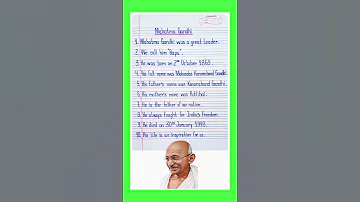 Mahatma Gandhi
1. Mahatma Gandhi was a great Leader.
2. We call him "Bapu".
3. He was born on 2nd October 1869.
4. His full name was Mohandas Karamchand Gandhi.
5. His father's name was Karamchand Gandhi.
6. His mother's name was Putlibai.
7. He is the father of our nation.
8. He always fought for India's freedom.
9. He died on 30th January 1948.
10. His life is an inspiration for us.